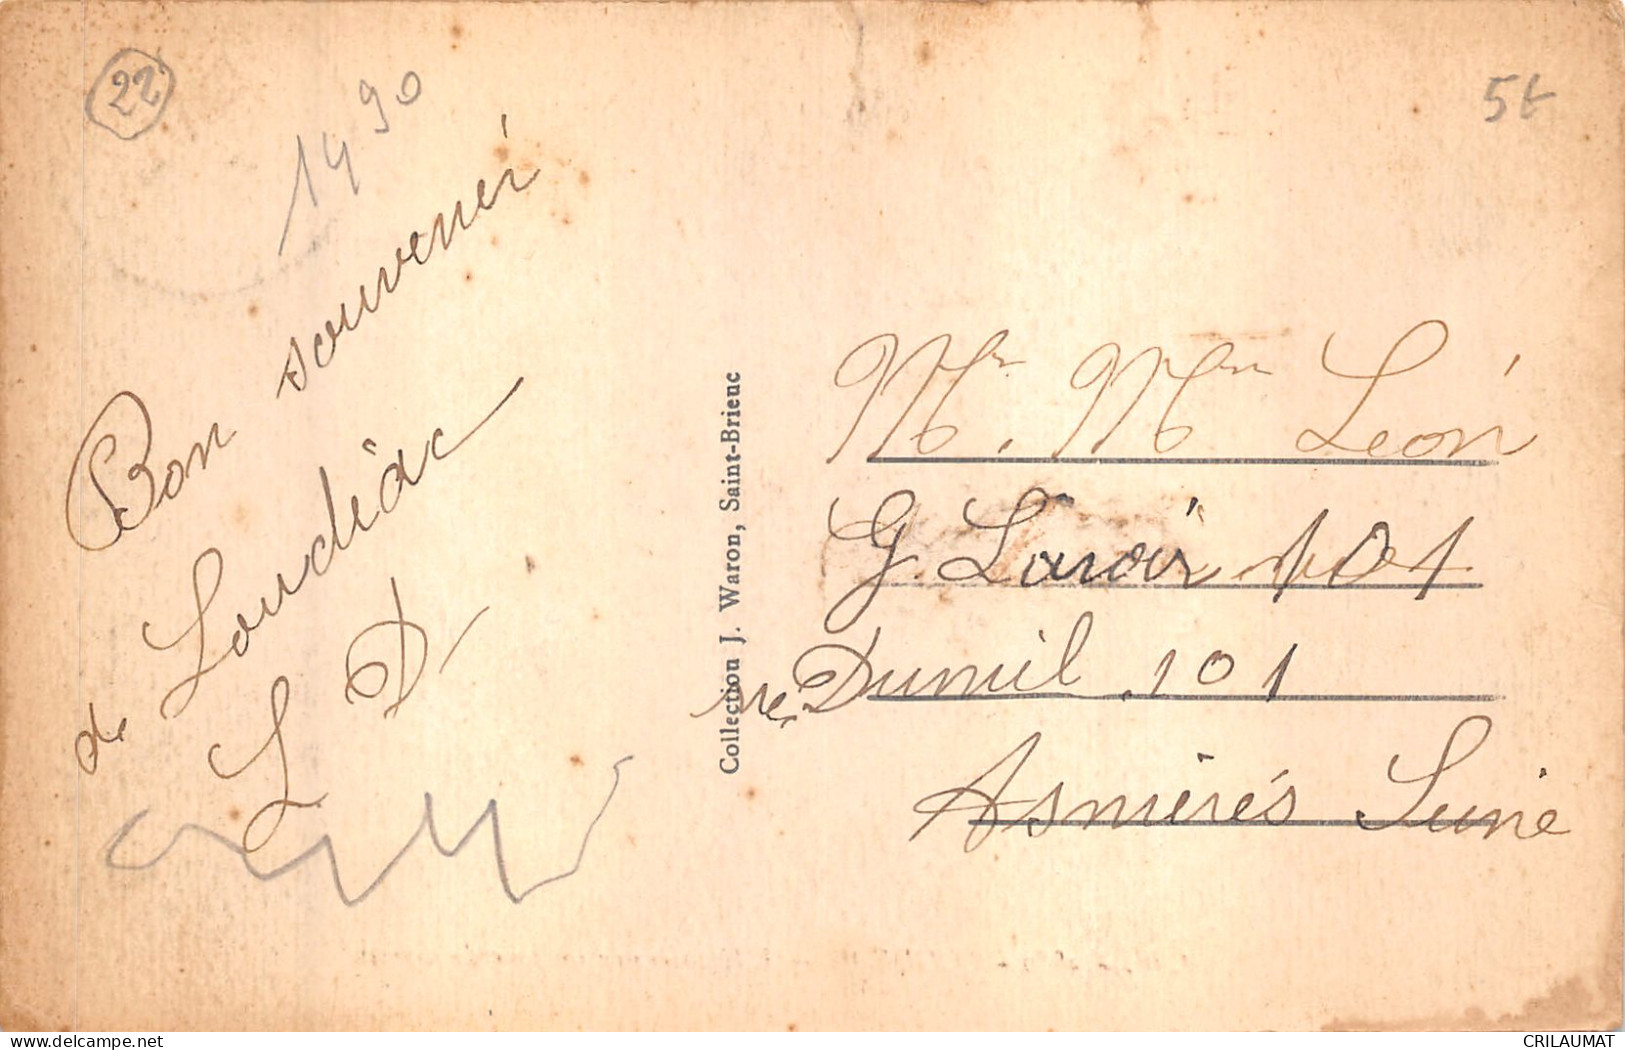 22
1490
5€
Bon souvenir
de Loudéac
L D
Collection J. Waron, Saint-Brieuc
Mr. Mme Léon
G. Lavoir 101
rue Dumil 101
Asnières Seine
CRILAUMAT